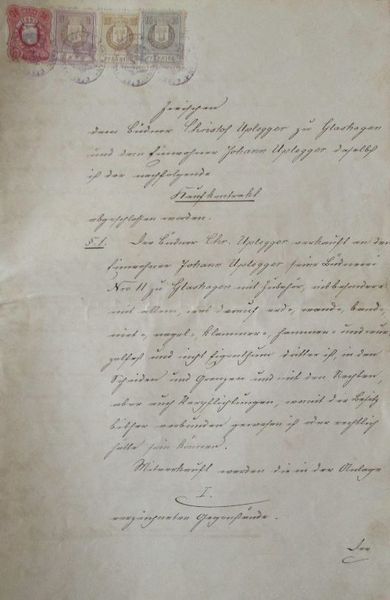 Zwischen
dem Büdner Christof Uplegger zu Glashagen
und dem Einwohner Johann Uplegger daselbst
ist der nachfolgende
Kaufkontrakt
abgeschlossen worden.
§ 1. Der Büdner Chr. Uplegger verkauft an den
Einwohner Johann Uplegger seine Büdnerei
Nro 11 zu Glashagen mit Zubehör, insbesondere
mit allem, was darauf erd-, wand-, band-,
niet-, nagel-, klammer-, hammer- und wur-
zelfest und nicht Eigenthum dritter ist, in den
Scheiden und Grenzen und mit den Rechten,
aber auch Verpflichtungen, womit der Besitz
bisher verbunden gewesen ist oder rechtlich
hätte sein können.
Mitverkauft werden die in der Anlage
I.
verzeichneten Gegenstände.
Der